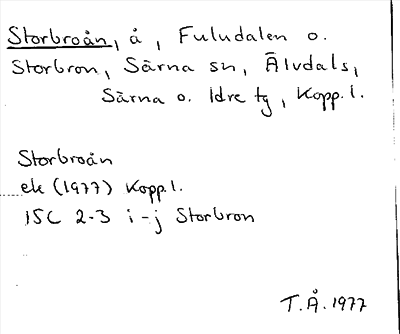 Storbroån, å, Fuludalen o.
Storbron, Särna sn, Älvdals,
Särna o. Idre tg, Kopp.l.
Storbroån
ek (1977) Kopp.l.
15C 2-3 i-j Storbron
T.Å. 1977